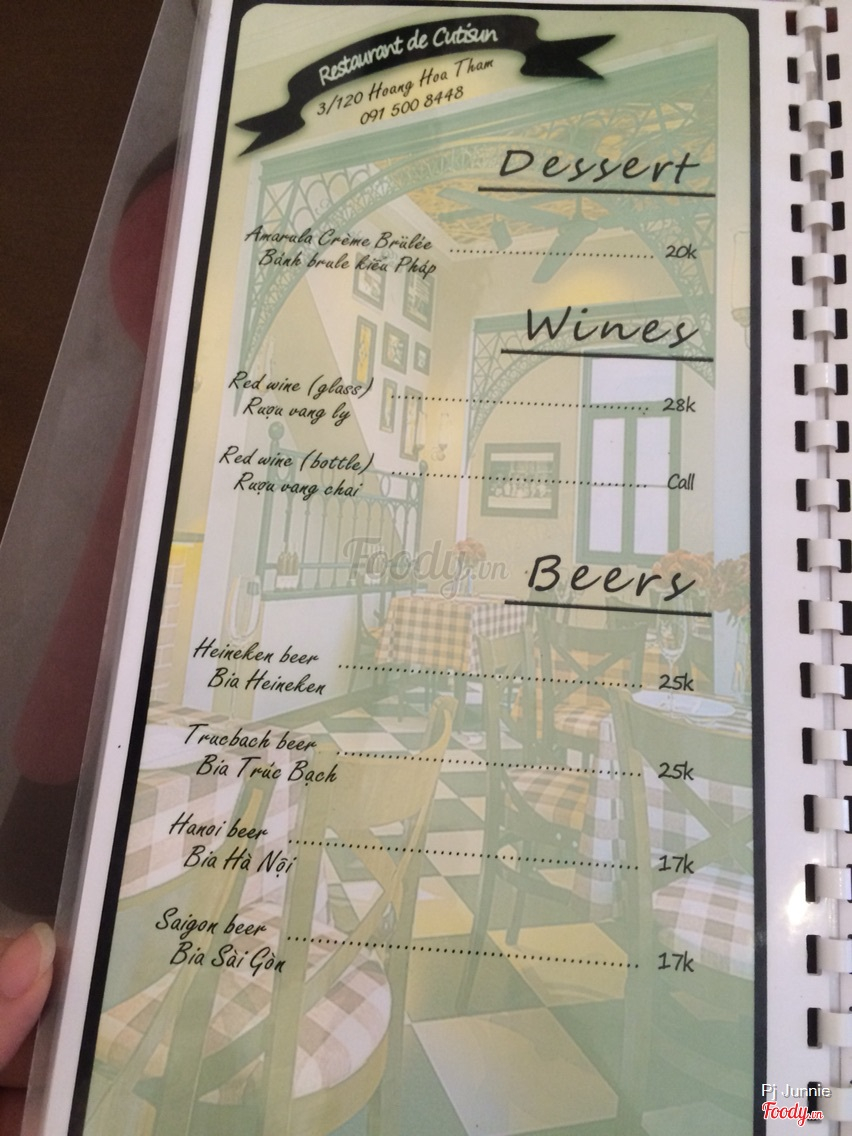 Restaurant de Cutisun
3/120 Hoang Hoa Tham
091 500 8448
Dessert
Amarula Crème Brûlée ........................ 20k
Bánh brule kiểu Pháp
Wines
Red wine (glass) ........................ 28k
Rượu vang ly
Red wine (bottle) ........................ Call
Rượu vang chai
Foody.vn
Beers
Heineken beer ........................ 25k
Bia Heineken
Trucbach beer ........................ 25k
Bia Trúc Bạch
Hanoi beer ........................ 17k
Bia Hà Nội
Saigon beer ........................ 17k
Bia Sài Gòn
Pj Junnie
Foody.vn